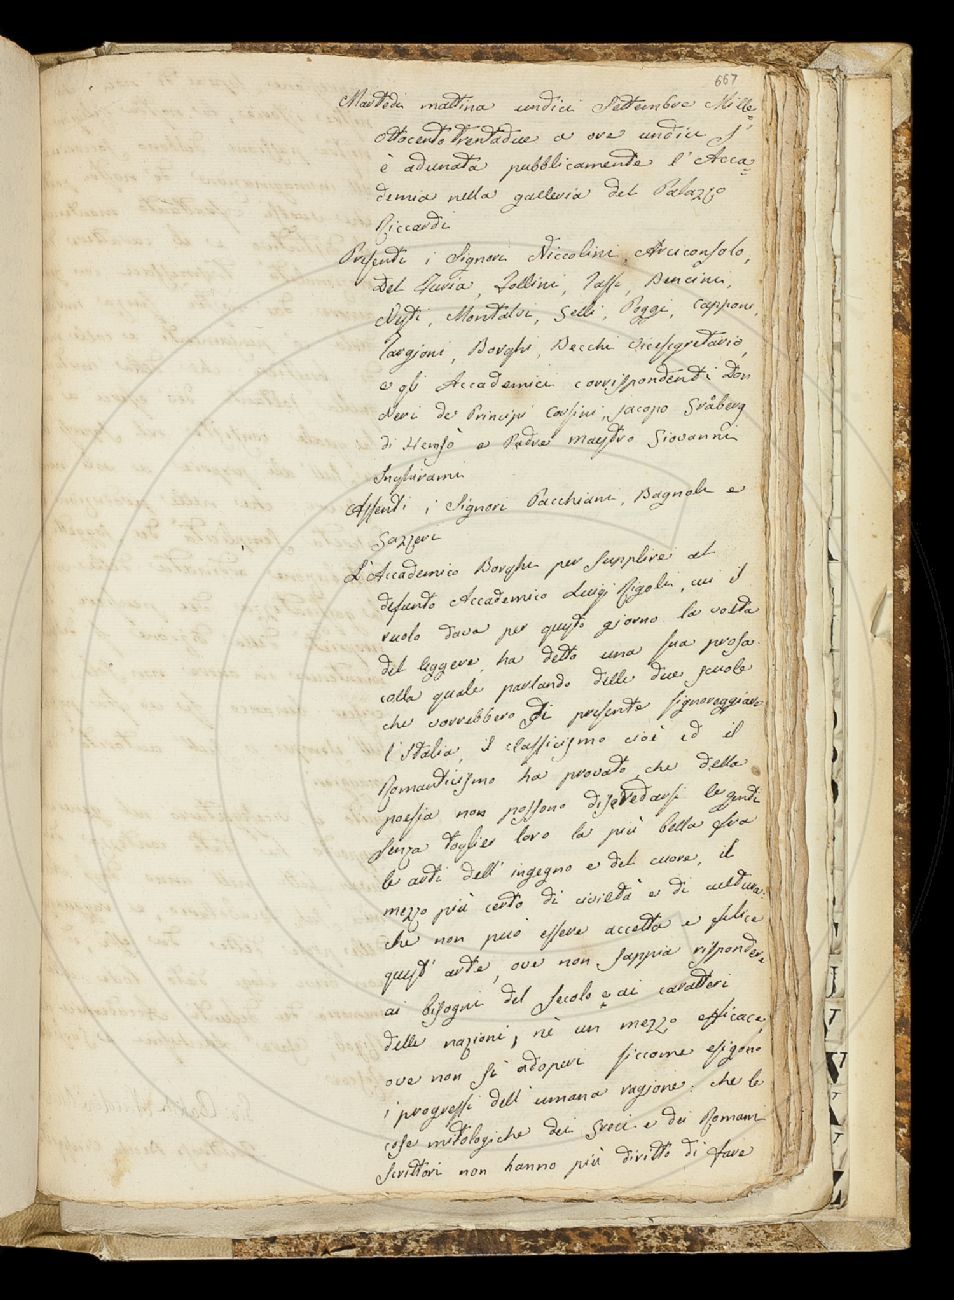 667
Martedì mattina undici Settembre Mille=
ottocentotrentadue a ore undici s'
è adunata pubblicamente l'Acca=
demia nella galleria del Palazzo
Riccardi
Presenti i Signori Niccolini, Arciconsolo,
Del Furia, Follini, Tassi, Bencini,
Nesti, Montalvi, Gelli, Poggi, Capponi,
Targioni, Borghi, Becchi Vicesegretario,
e gli Accademici corrispondenti Don
Neri de' Principi Corsini, Jacopo Gråberg
di Hemsö e Padre maestro Giovanni
Inghirami
Assenti i Signori Pacchiani, Bagnoli e
Gazzeri
L'Accademico Borghi per supplire al
defunto Accademico Luigi Rigoli, cui il
ruolo dava per questo giorno la volta
del leggere, ha detto una sua prosa
colla quale parlando delle due scuole
che vorrebbero di presente signoreggiare
l'Italia, il classicismo cioè ed il
Romanticismo ha provato che della
poesia non possono diseredarsi le genti
senza toglier loro la più bella fra
le arti dell'ingegno e del cuore, il
mezzo più certo di civiltà e di cultura:
che non può essere accetta e felice
quest'arte, ove non sappia rispondere
ai bisogni del secolo e ai caratteri
delle nazioni; nè un mezzo efficace,
ove non si adoperi siccome esigono
i progressi dell'umana ragione: che le
cose mitologiche dei Greci e dei Romani
Scrittori non hanno più diritto di fare